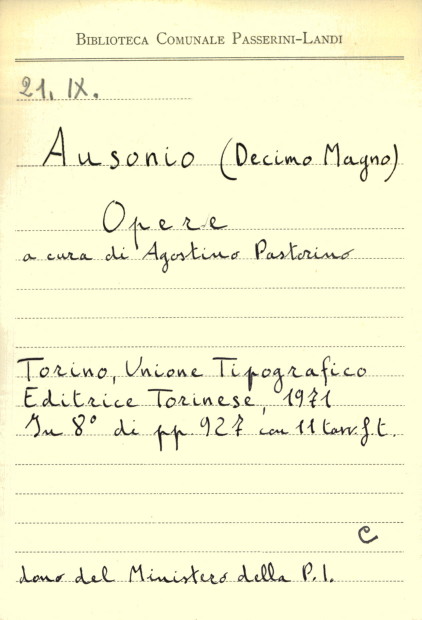 BIBLIOTECA COMUNALE PASSERINI-LANDI
21. IX.
Ausonio (Decimo Magno)
Opere
a cura di Agostino Pastorino
Torino, Unione Tipografico
Editrice Torinese, 1971
In 8° di pp 927 con 11 tavv. f. t.
C
dono del Ministero della P. I.